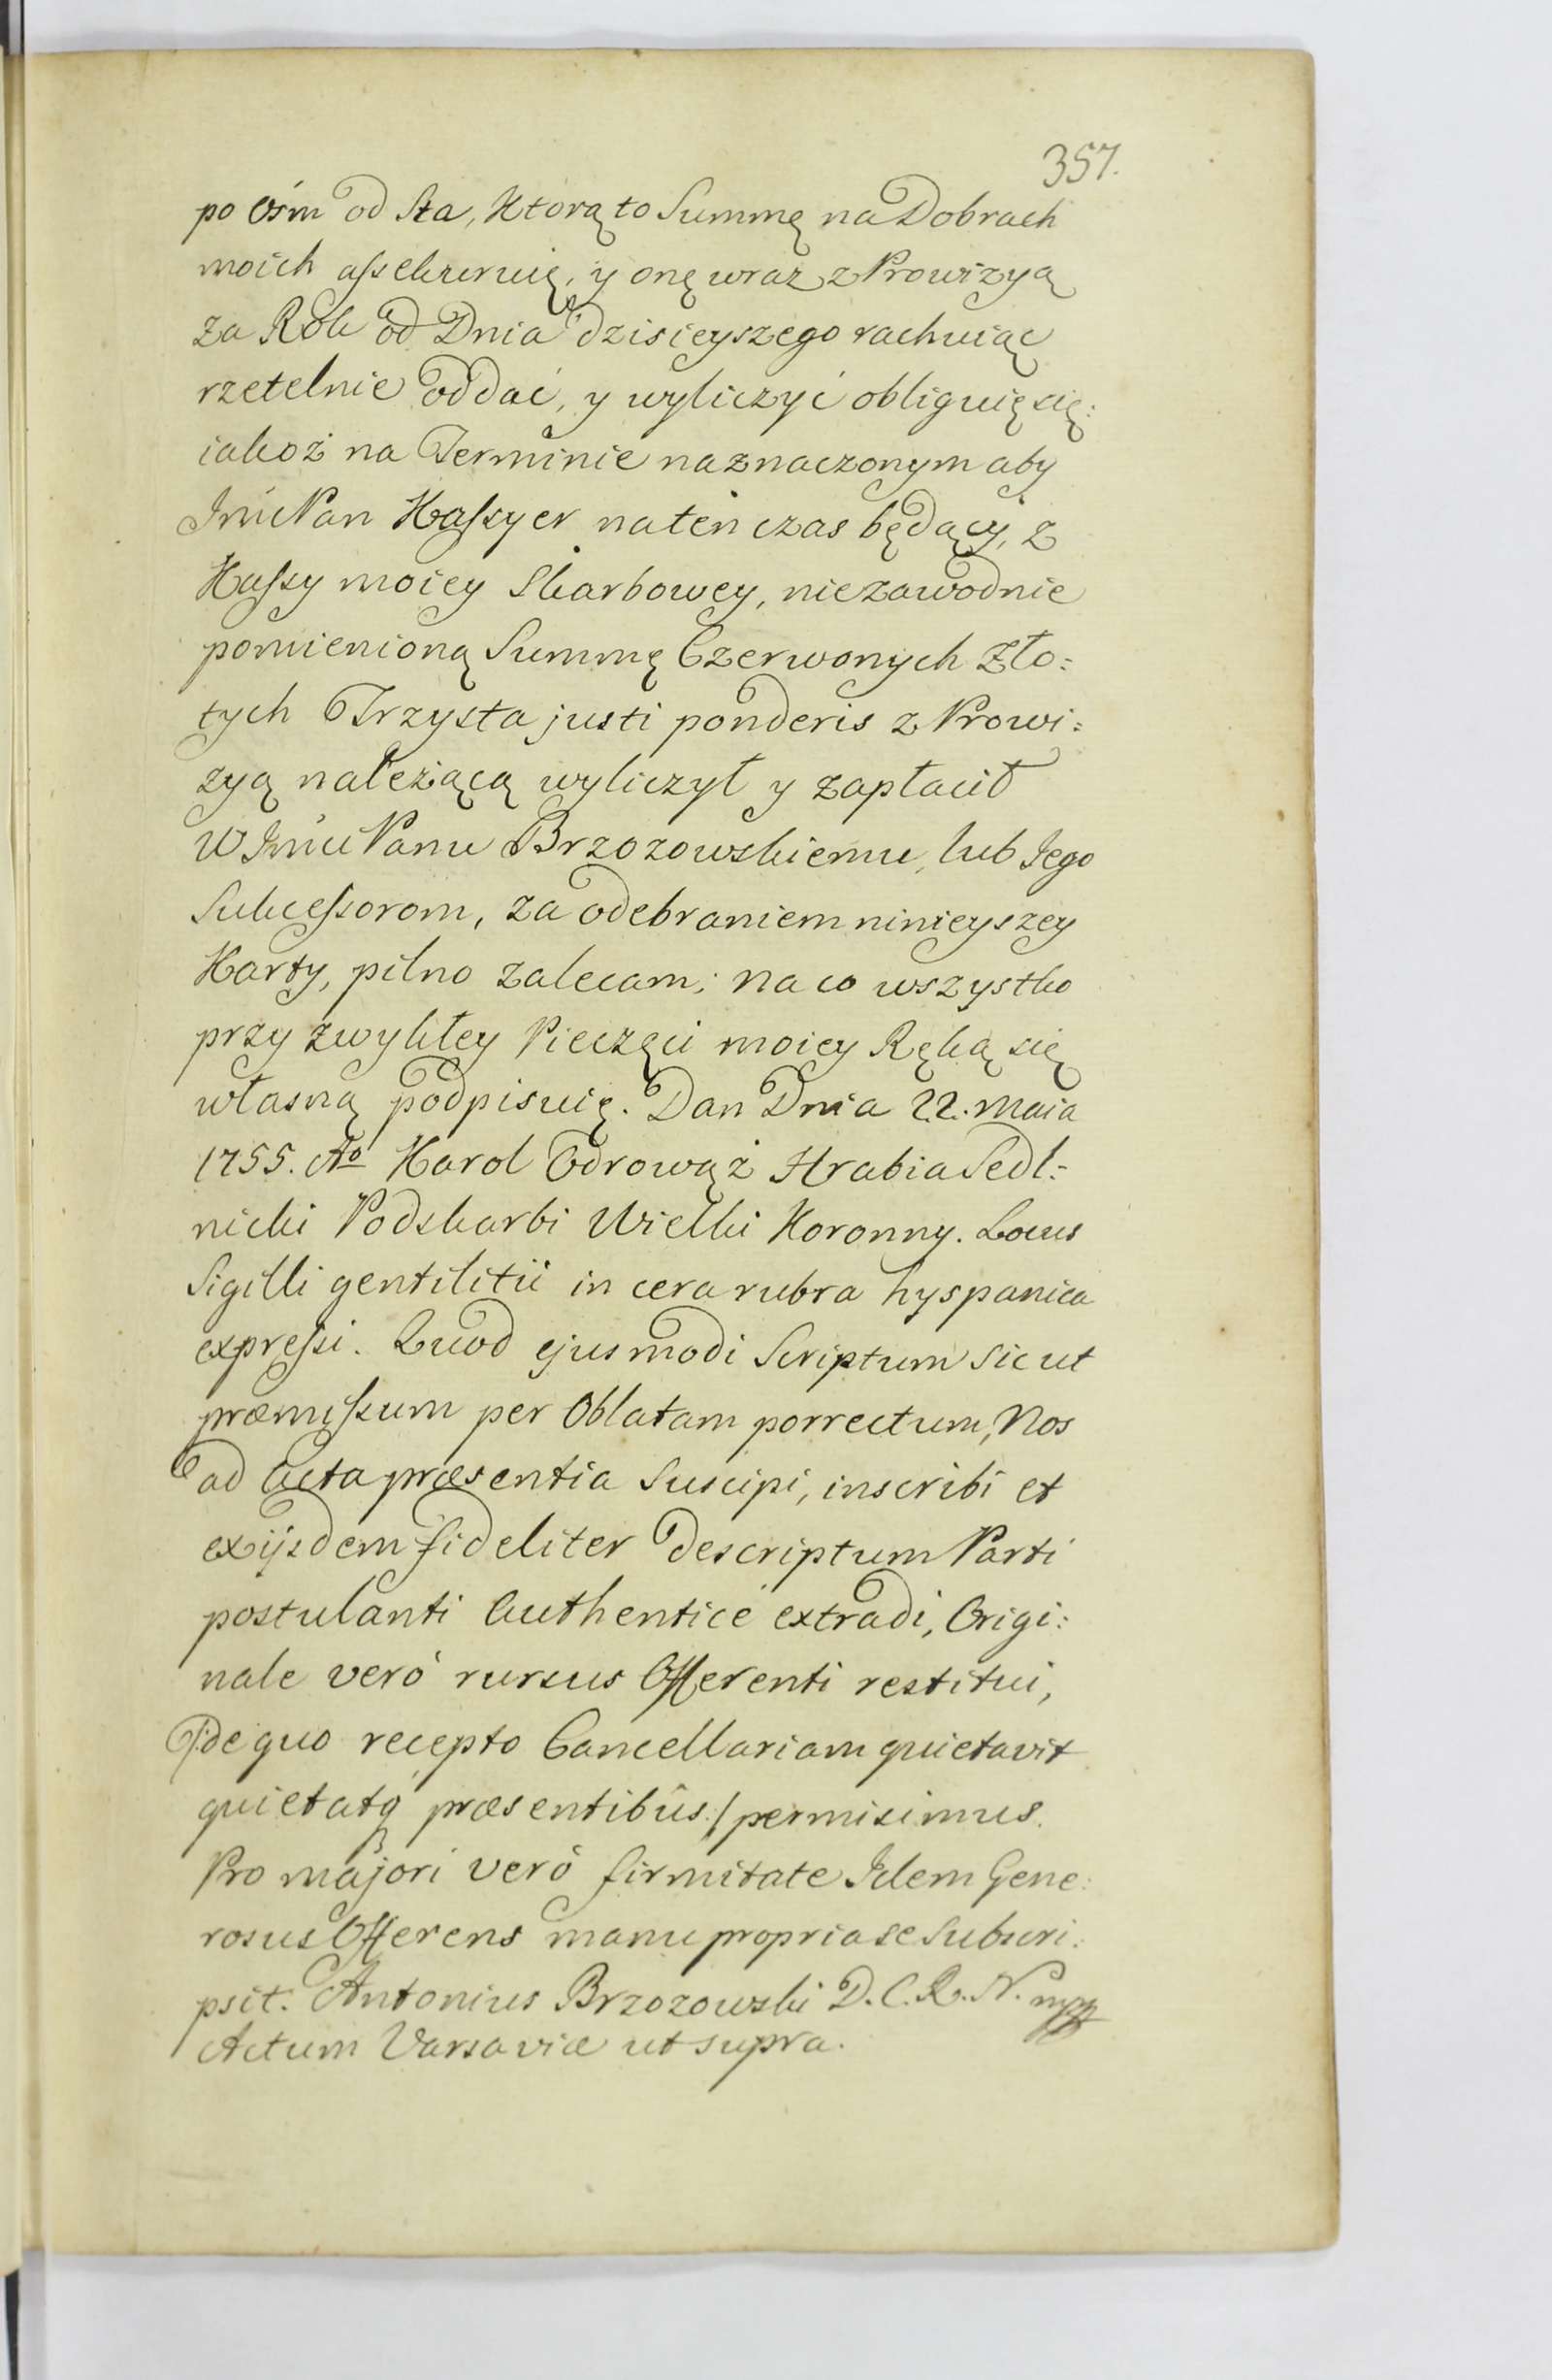 357.
po Ośm od Sta, Ktorą to Summę na Dobrach
moich assekuruię, y onę wraz z Prowizyą
za Rok od Dnia dzisieyszego rachuiąc
rzetelnie oddać, y wyliczyć obliguię się:
iakoż na Terminie naznaczonym aby
Jmć Pan Kassyer na ten czas będący, z
Kassy moiey Skarbowey, niezawodnie
pomienioną Summę Czerwonych Zło=
tych Trzysta justi ponderis z Prowi=
zyą należącą wyliczył y zapłacił
W Jmći Panu Brzozowskiemu, lub Jego
Sukcessorom, za odebraniem ninieyszey
Karty, pilno zalecam; na co wszystko
przy zwykłey Pieczęci moiey Ręką się
własną podpisuię. Dan Dnia 22. Maia
1755. Ao Karol Odrowąż Hrabia Sedl=
nicki Podskarbi Wielki Koronny. Locus
Sigilli gentilitii in cera rubra hyspanica
expressi. Quod ejusmodi Scriptum sicut
præmissum per Oblatam porrectum, Nos
ad Acta præsentia Suscipi, inscribi et
ex ijsdem fideliter descriptum Parti
postulanti Authenticè extradi, Origi:
nale verò rursus Offerenti restitui,
/:de quo recepto Cancellariam quietavit
quietatq præsentibûs:/ permisimus.
Pro majori verò firmitate Idem Gene:
rosus Offerens manu propria se Subscri:
psit. Antonius Brzozowski D.C.R.N. mpp
Actum Varsaviæ ut supra.